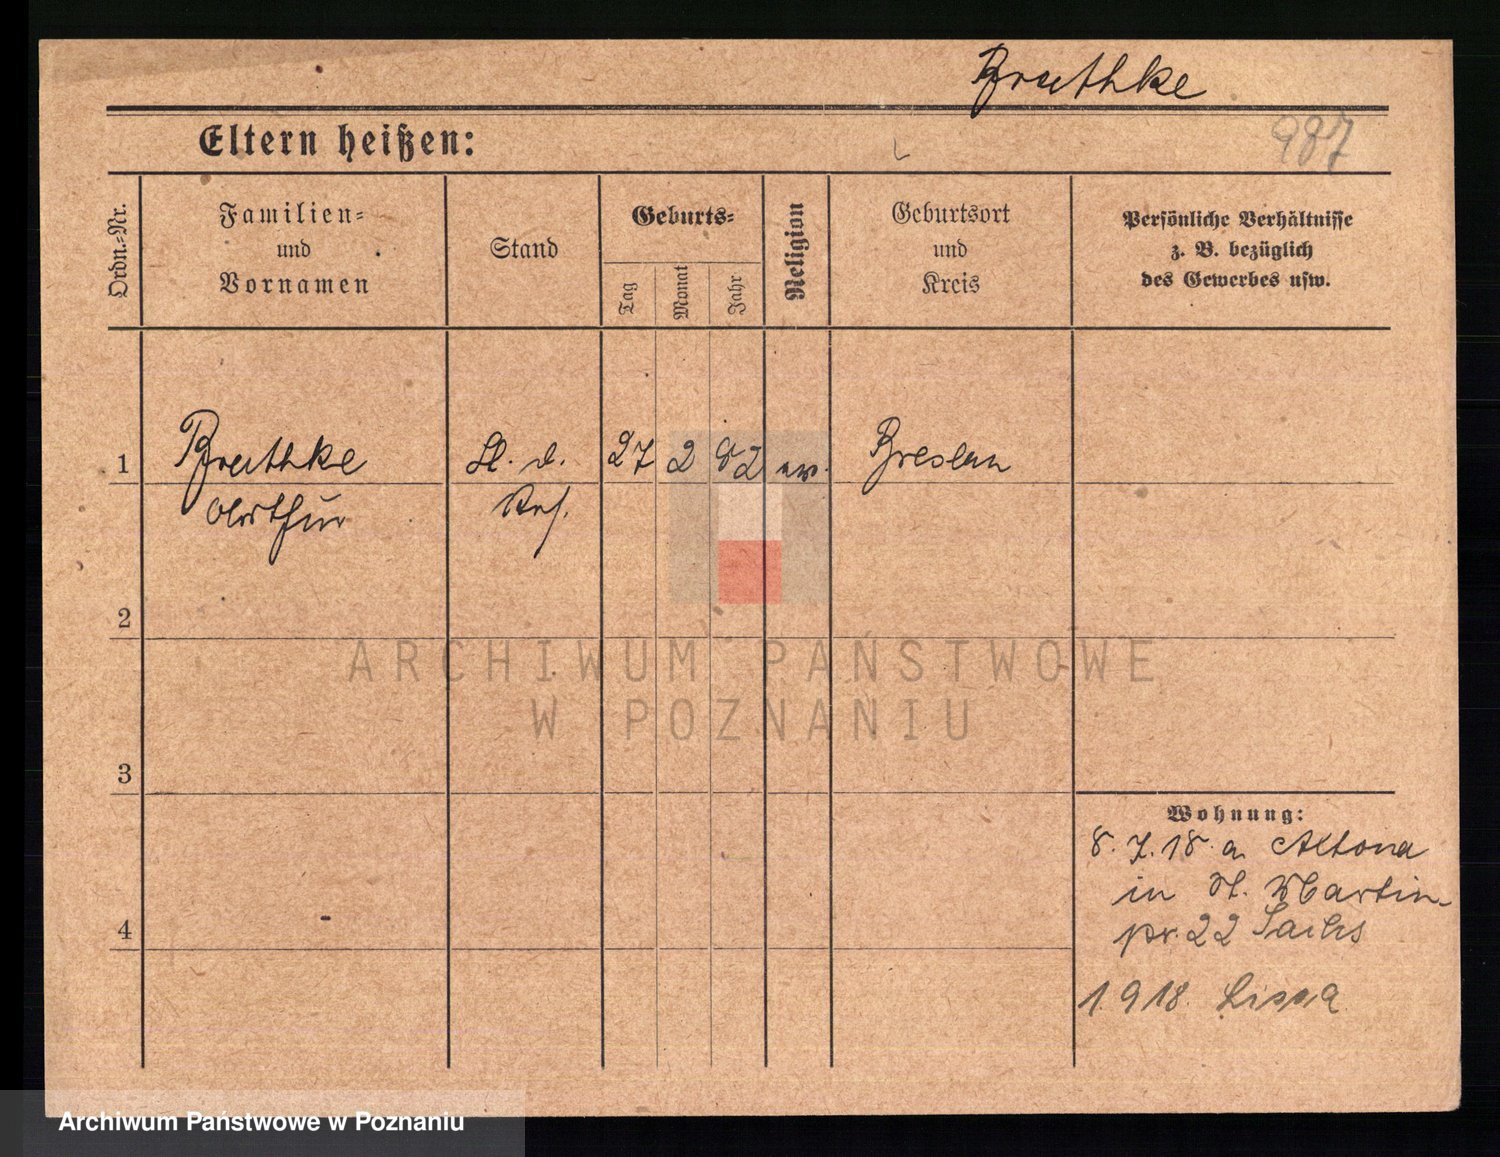 Brathke
Eltern heißen:
987
Ordn.-Nr.
Familien-
und
Vornamen
Stand
Geburts-
Tag
Monat
Jahr
Religion
Geburtsort
und
Kreis
Persönliche Verhältnisse
z. B. bezüglich
des Gewerbes usw.
1
Brathke
Arthur
d.
27
2
82
ev.
Breslau
2
ARCHIWUM PAŃSTWOWE
W POZNANIU
3
Wohnung:
8. 7. 18. a Altona
in St. Martin-
pr. 22 Sachs
4
1. 9 18. Lissa
Archiwum Państwowe w Poznaniu